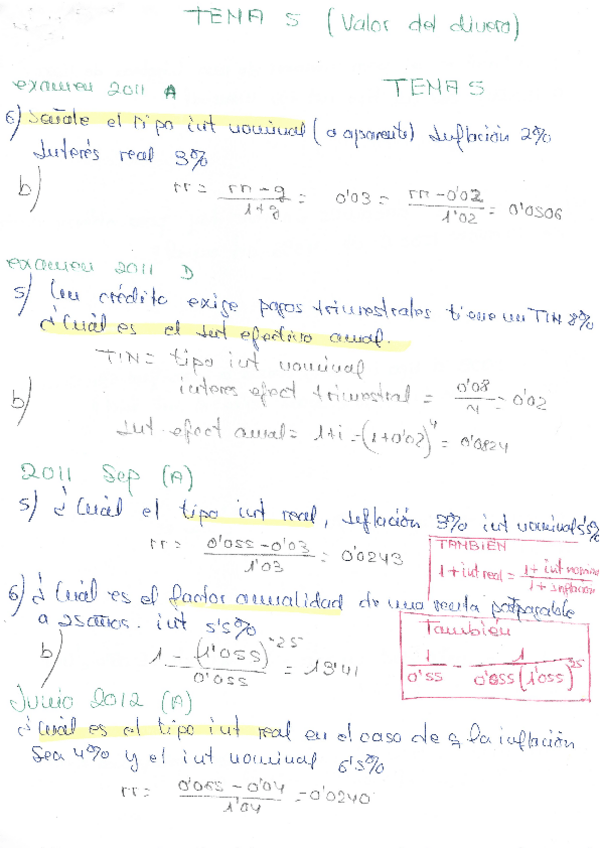 TEMA 5 (Valor del dinero)
examen 2011 A TEMA 5
6) Señale el tipo int nominal (o aparente) Inflación 2%
Interés real 3%
b) rr = rn - g / 1+g = 0'03 = rn - 0'02 / 1'02 = 0'0506
examen 2011 D
5) Un crédito exige pagos trimestrales tiene un TIN 8%
¿Cuál es el int efectivo anual.
TIN = tipo int nominal
interes efect trimestral = 0'08 / 4 = 0'02
b)
Int efect anual = 1+i = (1+0'02)^4 = 0'0824
2011 Sep (A)
5) ¿Cuál el tipo int real, inflación 3% int nominal 5'5%
rr = 0'055 - 0'03 / 1'03 = 0'0243
TAMBIÉN
1 + int real = 1 + int nomin / 1 + inflación
6) ¿Cuál es el factor anualidad de una renta postpagable
a 25 años. int 5'5%
b) 1 - (1'055)^-25 / 0'055 = 13'41
También
1 / 0'55 - 1 / 0'055 (1'055)^25
Junio 2012 (A)
¿Cuál es el tipo int real en el caso de q la inflación
Sea 4% y el int nominal 6'5%
rr = 0'065 - 0'04 / 1'04 = 0'0240